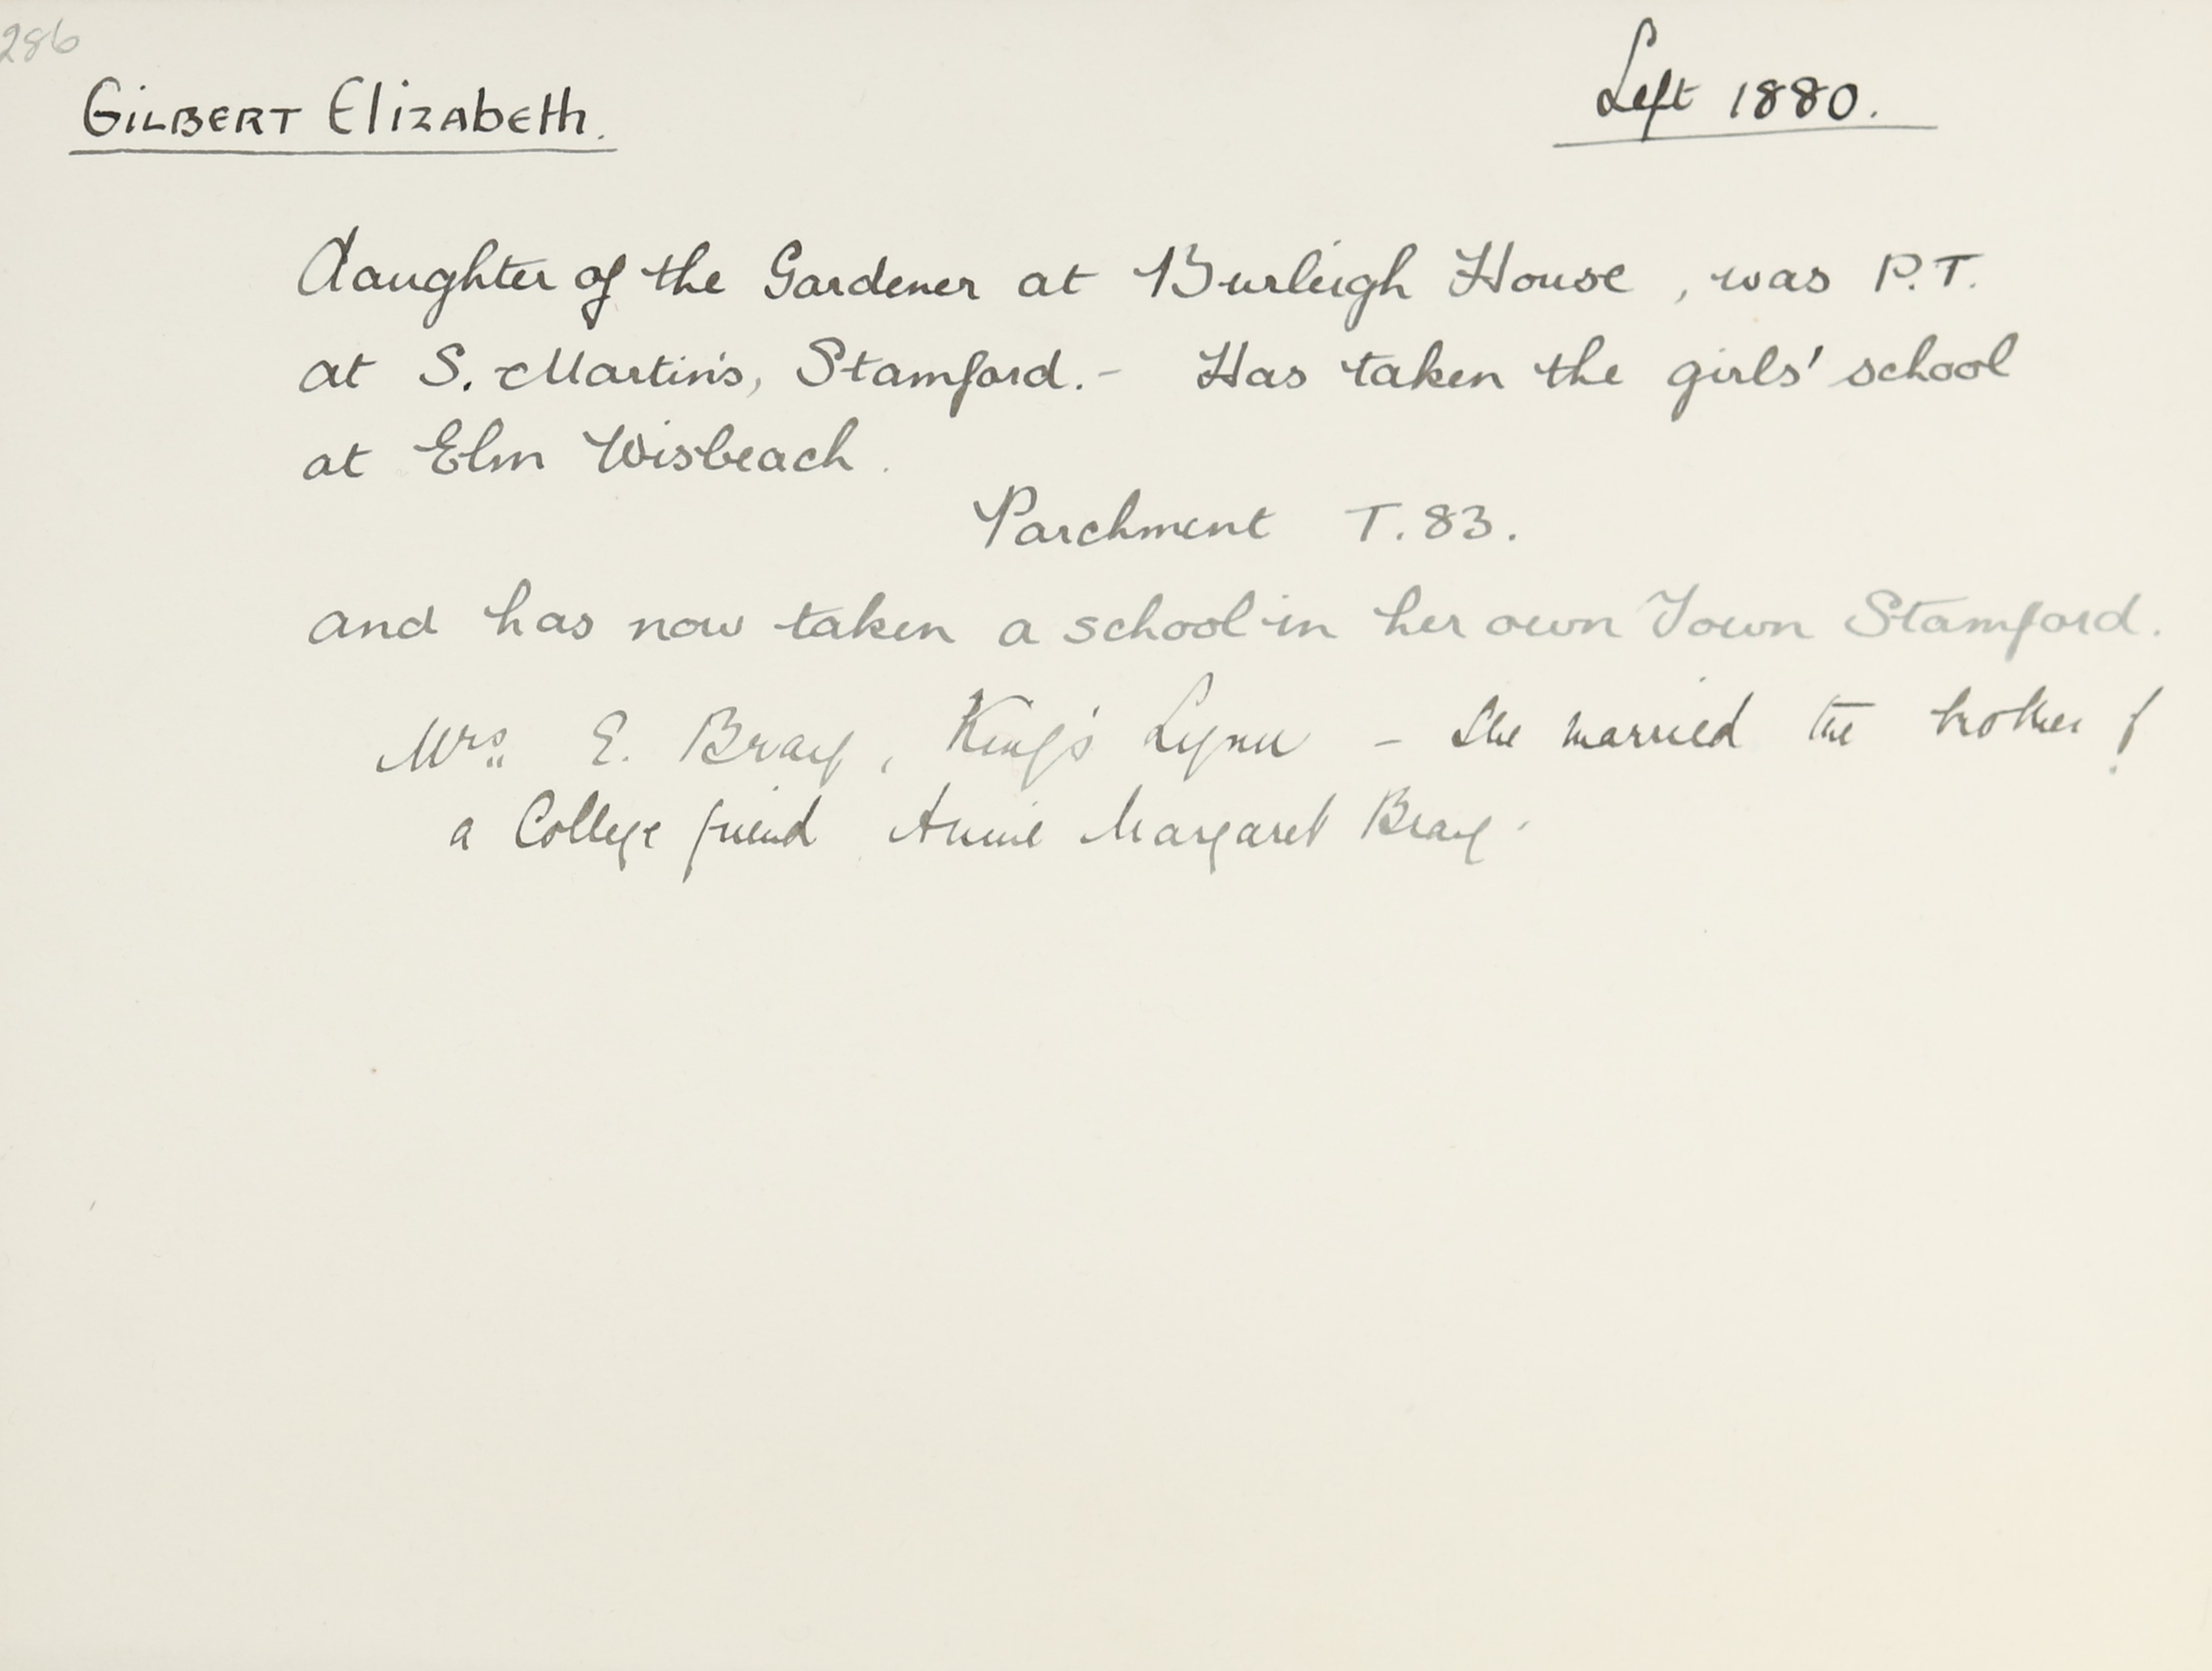 286
GILBERT Elizabeth.
Left 1880.
daughter of the Gardener at Burleigh House, was P.T.
at S. Martin's, Stamford. - Has taken the girls' school
at Elm Wisbeach.
Parchment T. 83.
and has now taken a school in her own Town Stamford.
Mrs. E. Bray, King's Lynn - she married the brother of
a College friend Annie Margaret Bray.